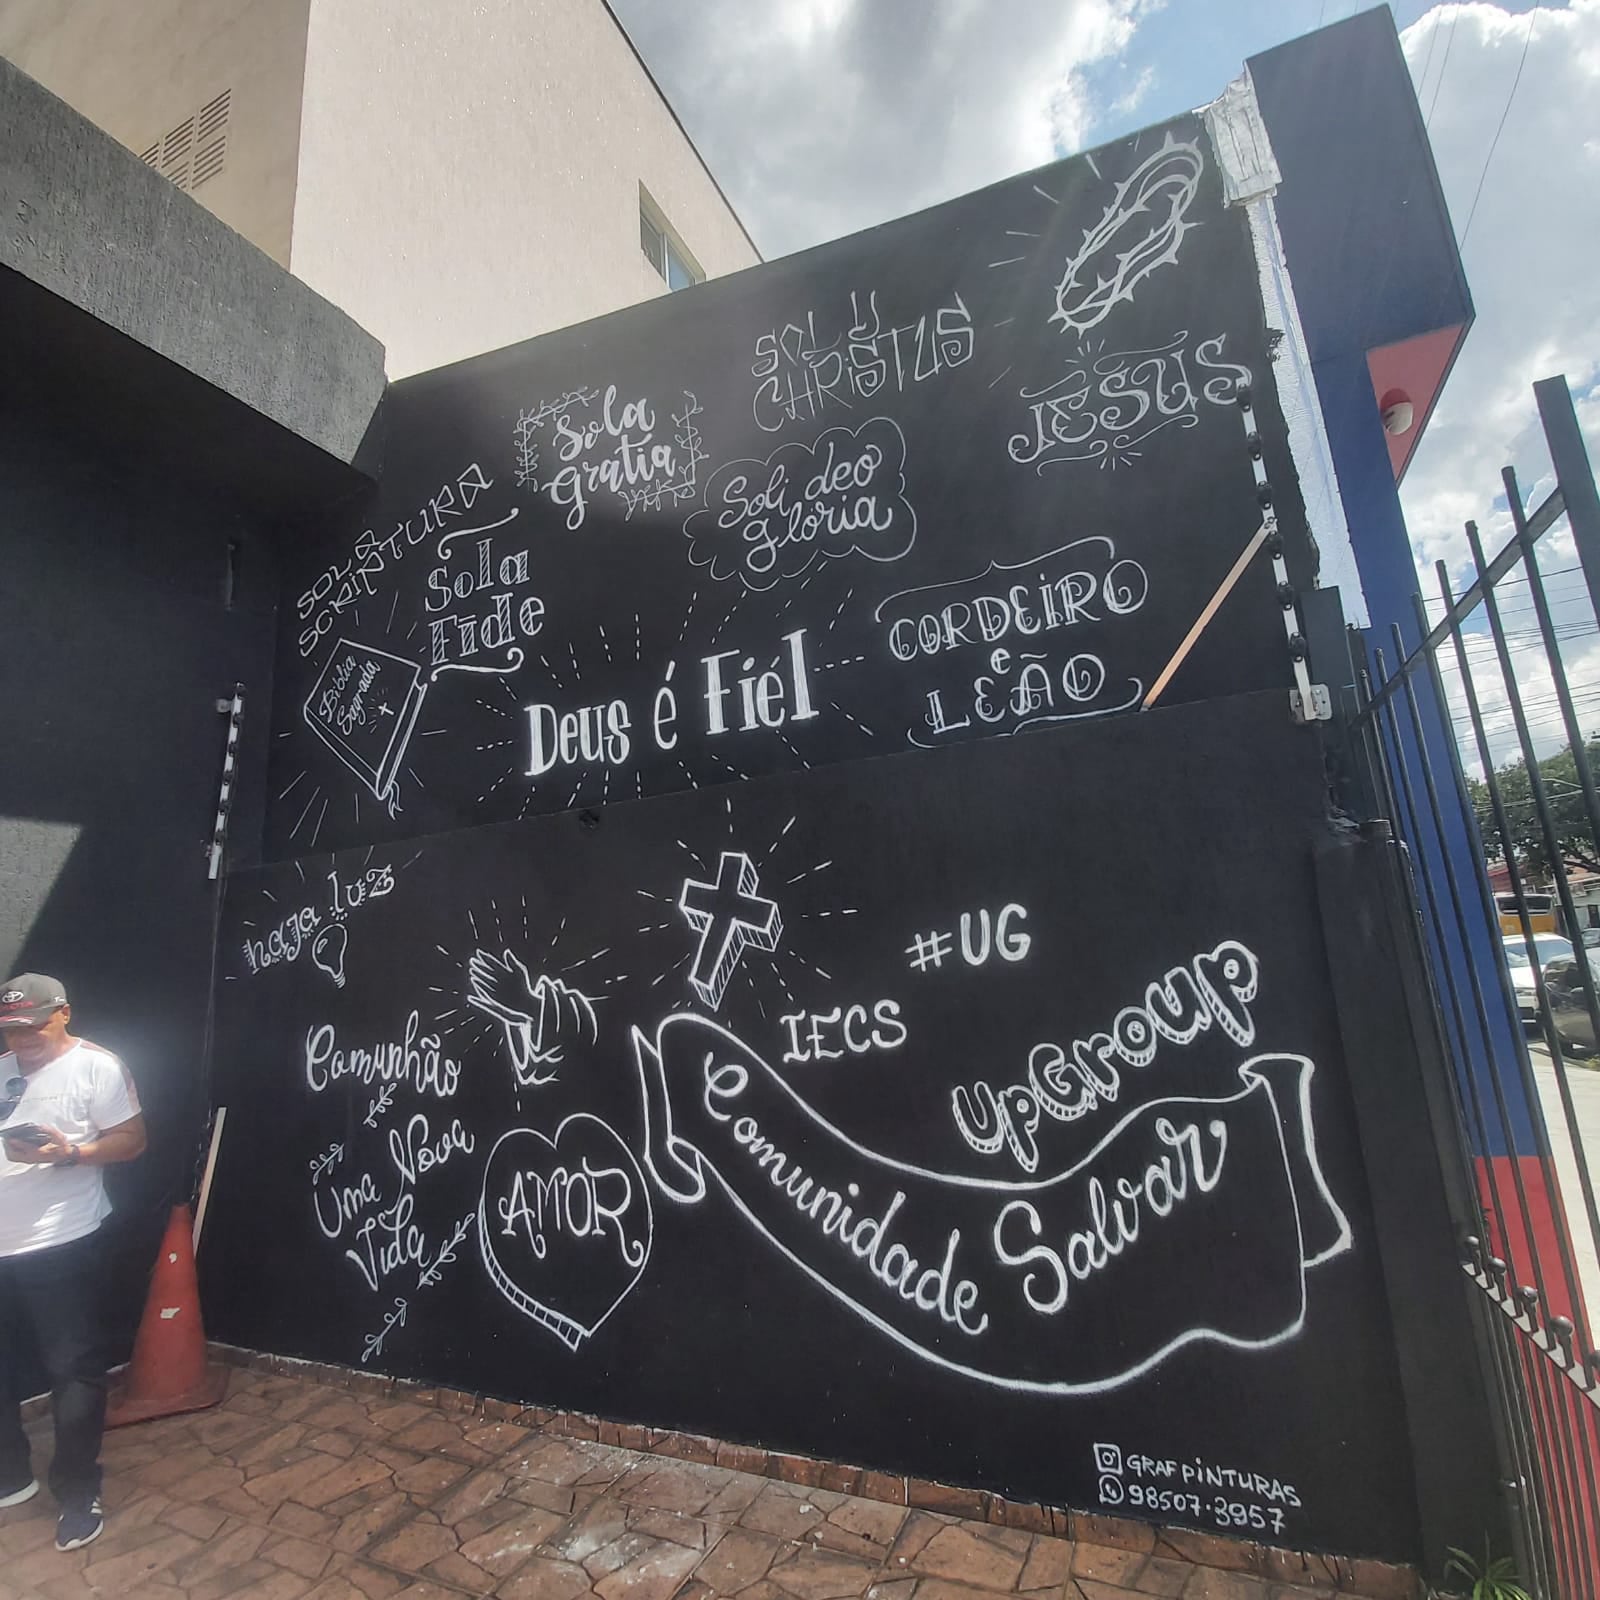 SOLU
CHRiSTUS
JESUS
Sola
gratia
Soli deo
gloria
SOLA
SCRiNTURA
Sola
Fide
Bíblia
Sagrada
Deus é Fiel
CORDEiRO
e
LEÃO
haja luz
#UG
IECS
UpGroup
Comunhão
Uma Nova
Vida
AMOR
Comunidade Salvar
GRAFPiNTURAS
98507.3957